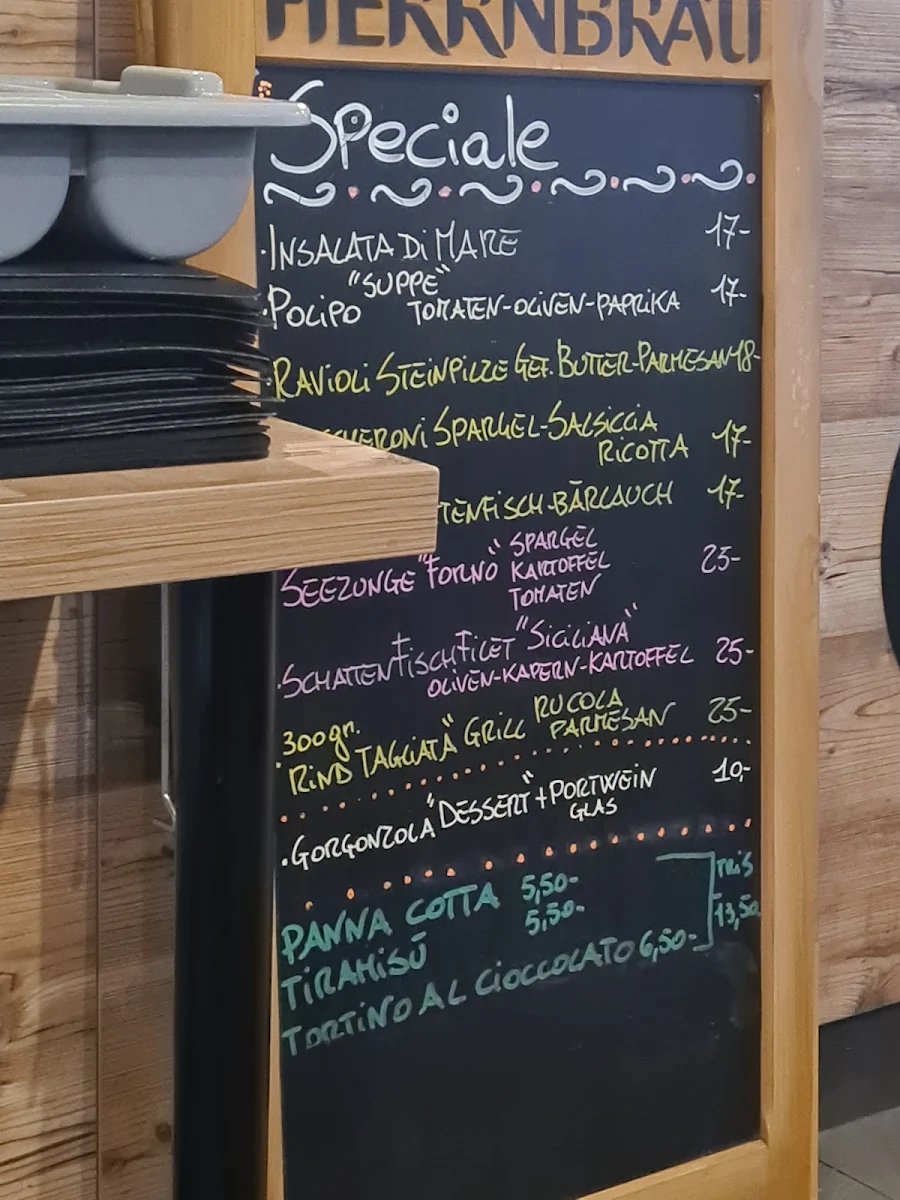 HERRNBRÄU
Speciale
·INSALATA Di MARE 17-
·POLIPO "SUPPE" TOMATEN-OLIVEN-PAPRIKA 17-
·RAVIOLI STEINPILZE GEF. BUTTER-PARMESAN 18-
SPARGEL-SALSICCIA
RICOTTA 17-
-BÄRLAUCH 17-
SEEZUNGE "FORNO" SPARGEL
KARTOFFEL 25-
TOMATEN
·SCHATTENFISCHFILET "SICILIANA"
OLIVEN-KAPERN-KARTOFFEL 25-
·300gr. RIND TAGLIATA" GRILL RUCOLA
PARMESAN 25-
·GORGONZOLA "DESSERT" + PORTWEIN
GLAS 10,-
PANNA COTTA 5,50-
TIRAMISÚ 5,50-
TORTINO AL CIOCCOLATO 6,50-
TRIS
13,50